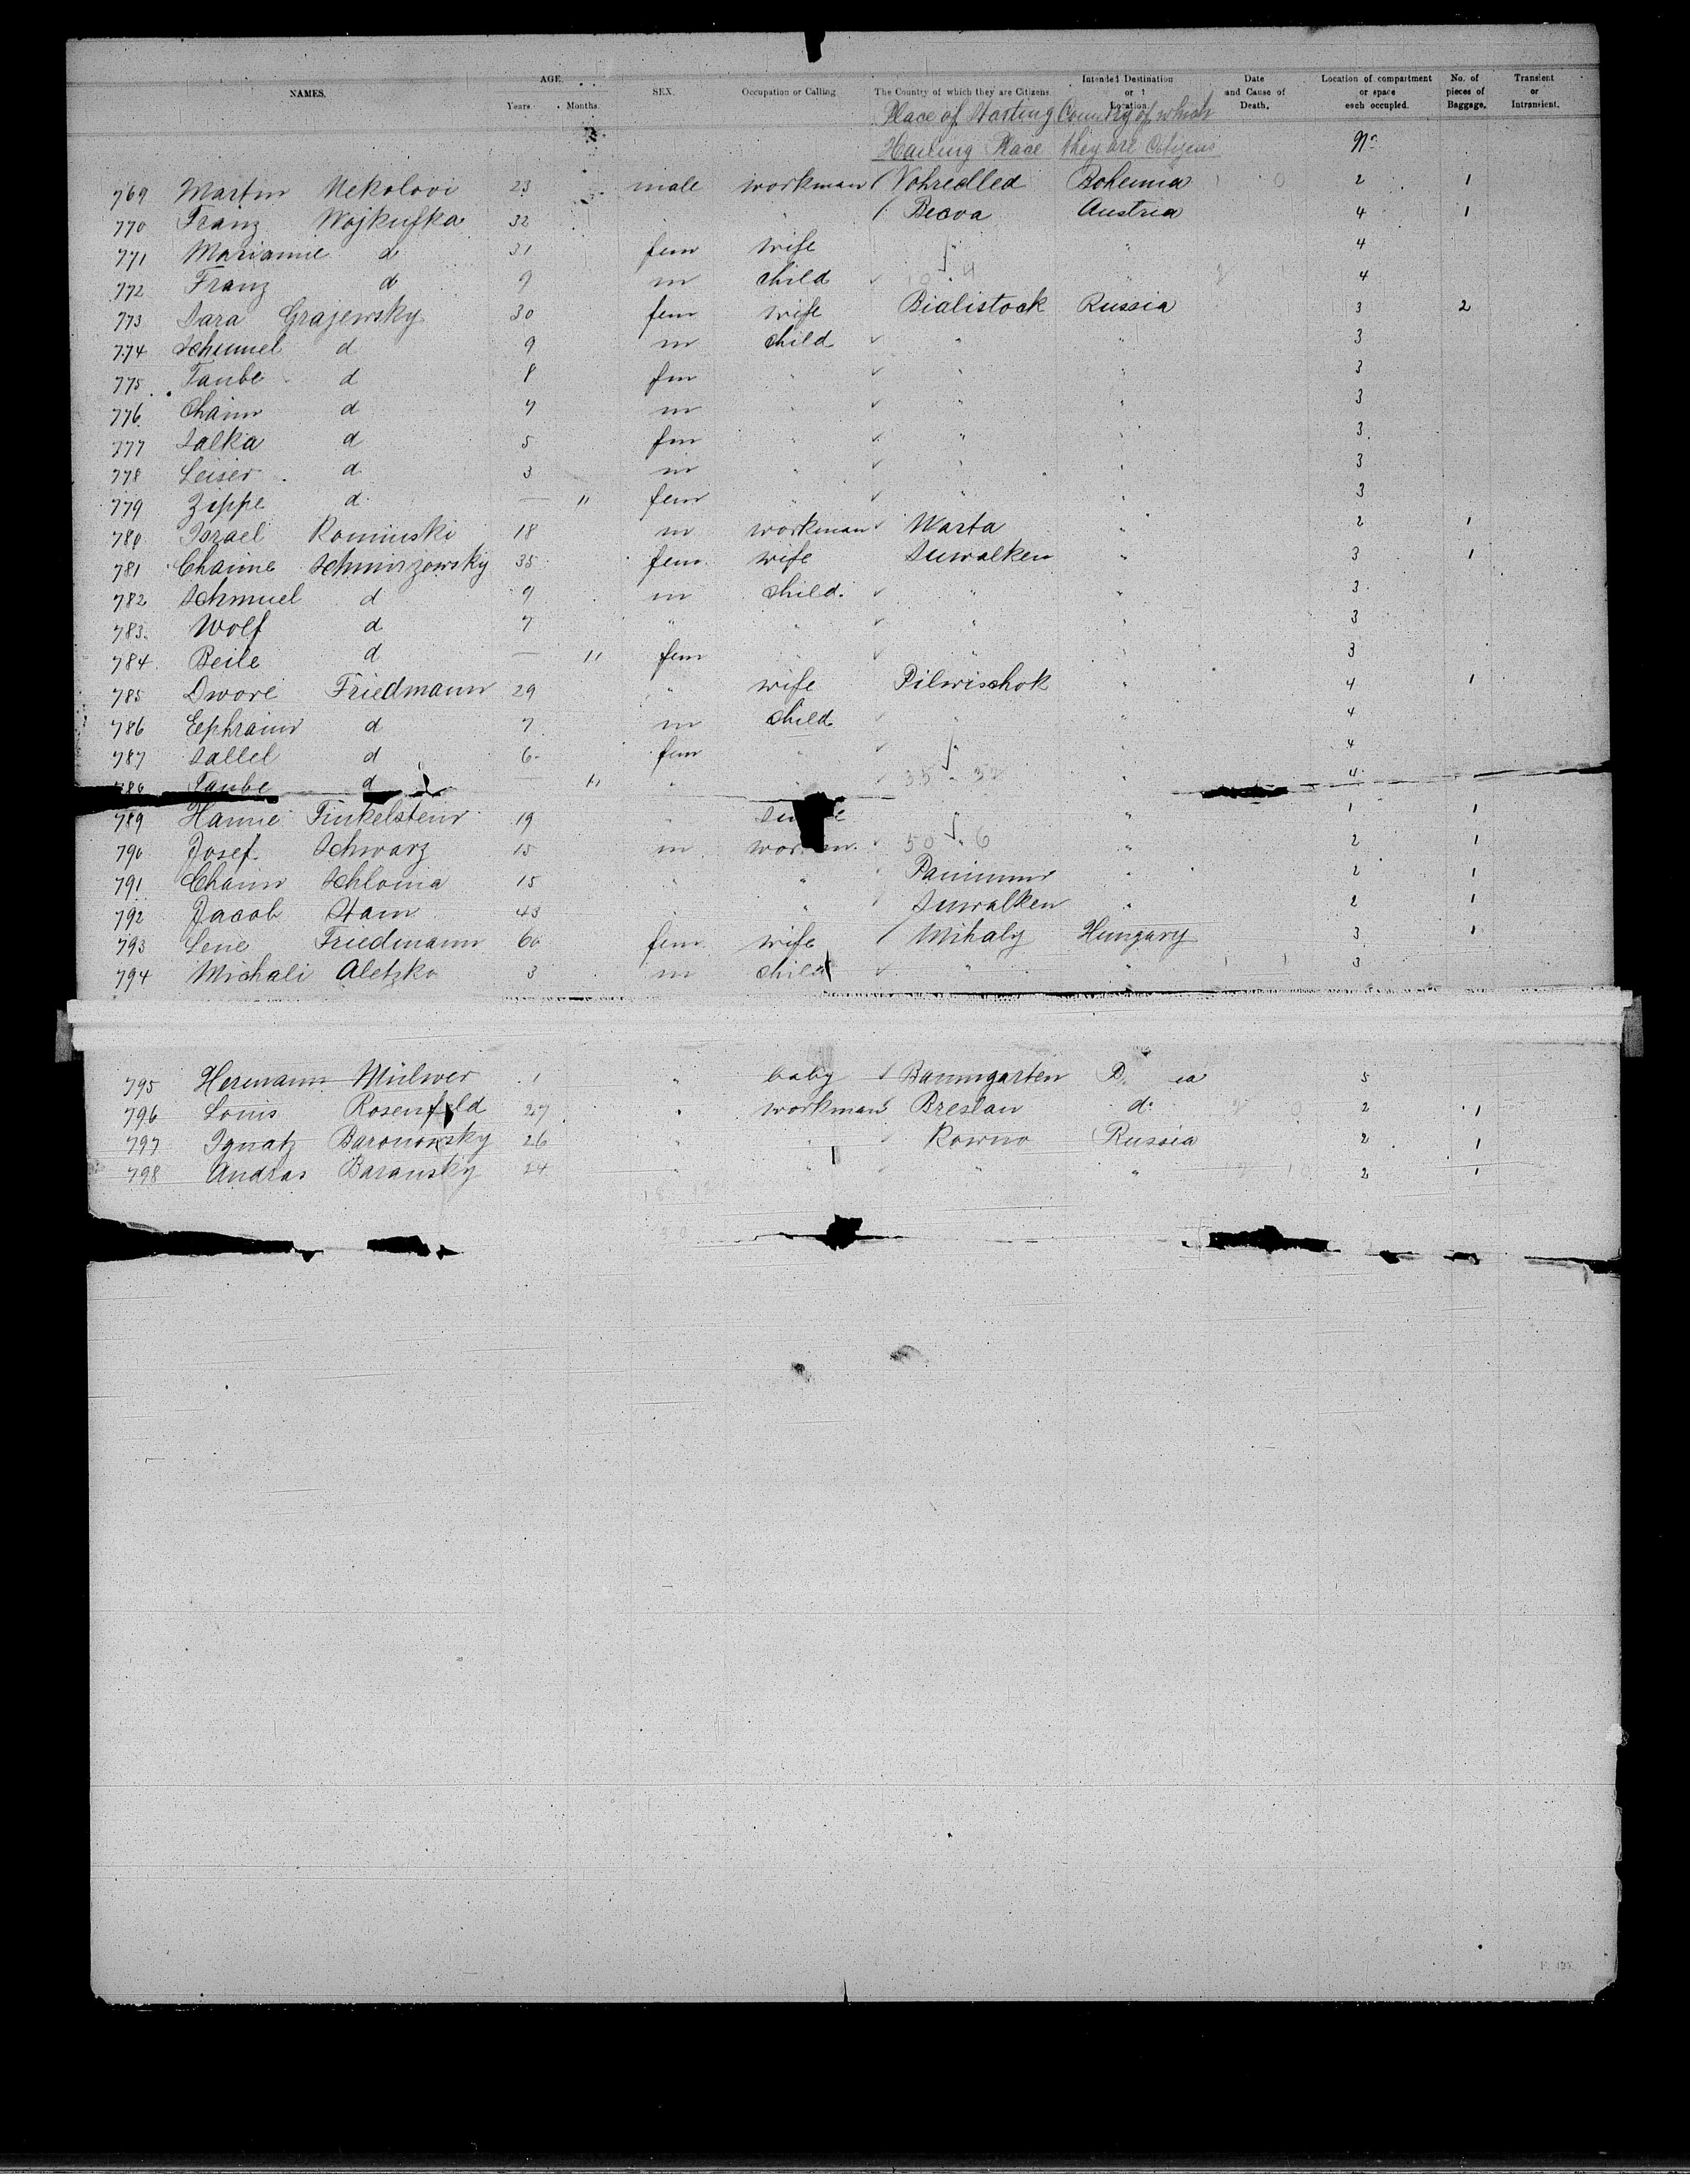 NAMES. AGE. Years. Months. SEX. Occupation or Calling The Country of which they are Citizens. Intended Destination or Location. Date and Cause of Death. Location of compartment or space each occupied. No. of pieces of Baggage. Transient or Intransient.
Place of Starting Country of which
Hailing Place they are Citizens No
769 Martin Nekolovi 23 male workman Bohemia 2 1
770 Franz Wojkufka 32 " " Becva Austria 4 1
771 Marianne d 31 fem wife " " 4
772 Franz d 9 m child " 4
773 Sara Grajewsky 30 fem wife Bialistock Russia 3 2
774 Schumel d 9 m child " " 3
775 Taube d 8 fm " " " 3
776 Chaim d 7 m " " 3
777 Salka d 5 fm " " " 3
778 Leiser d 3 m " " " 3
779 Zippe d — 11 fem " " " 3
780 Israel Kominski 18 m workman Warta " 2 1
781 Chaime Schmirzowsky 35 fem wife Suwalken " 3 1
782 Schmuel d 9 m child " " 3
783 Wolf d 7 " " " " 3
784 Beile d — 11 fem " " " 3
785 Dwore Friedmann 29 " wife Pilwischok " 4 1
786 Ephraim d 7 m child " " 4
787 Sallel d 6 fem " " " 4
Taube d — 11 " " 35 " 32 " 4
789 Hanne Finkelstein 19 " " " 1 1
790 Josef Schwarz 15 m 50 " 6 " 2 1
791 Chaim Schloma 15 " " " 2 1
792 Jacob Stam 43 " " Suwalken " 2 1
793 Lene Friedmann 60 fem wife Mihaly Hungary 3 1
794 Michali Aletzko 3 m child " " 3
795 Hermann 1 " baby Baumgarten 5
796 Louis Rosenfeld 27 " workman Breslau do 2 1
797 Ignatz Baronowsky 26 " " Kowno Russia 2 1
798 Andras Baransky 24 " " " " 2 1